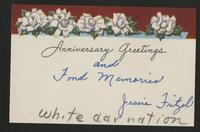 Anniversary Greetings
and
Fond Memories
Jessie Fritzel
white dar nation